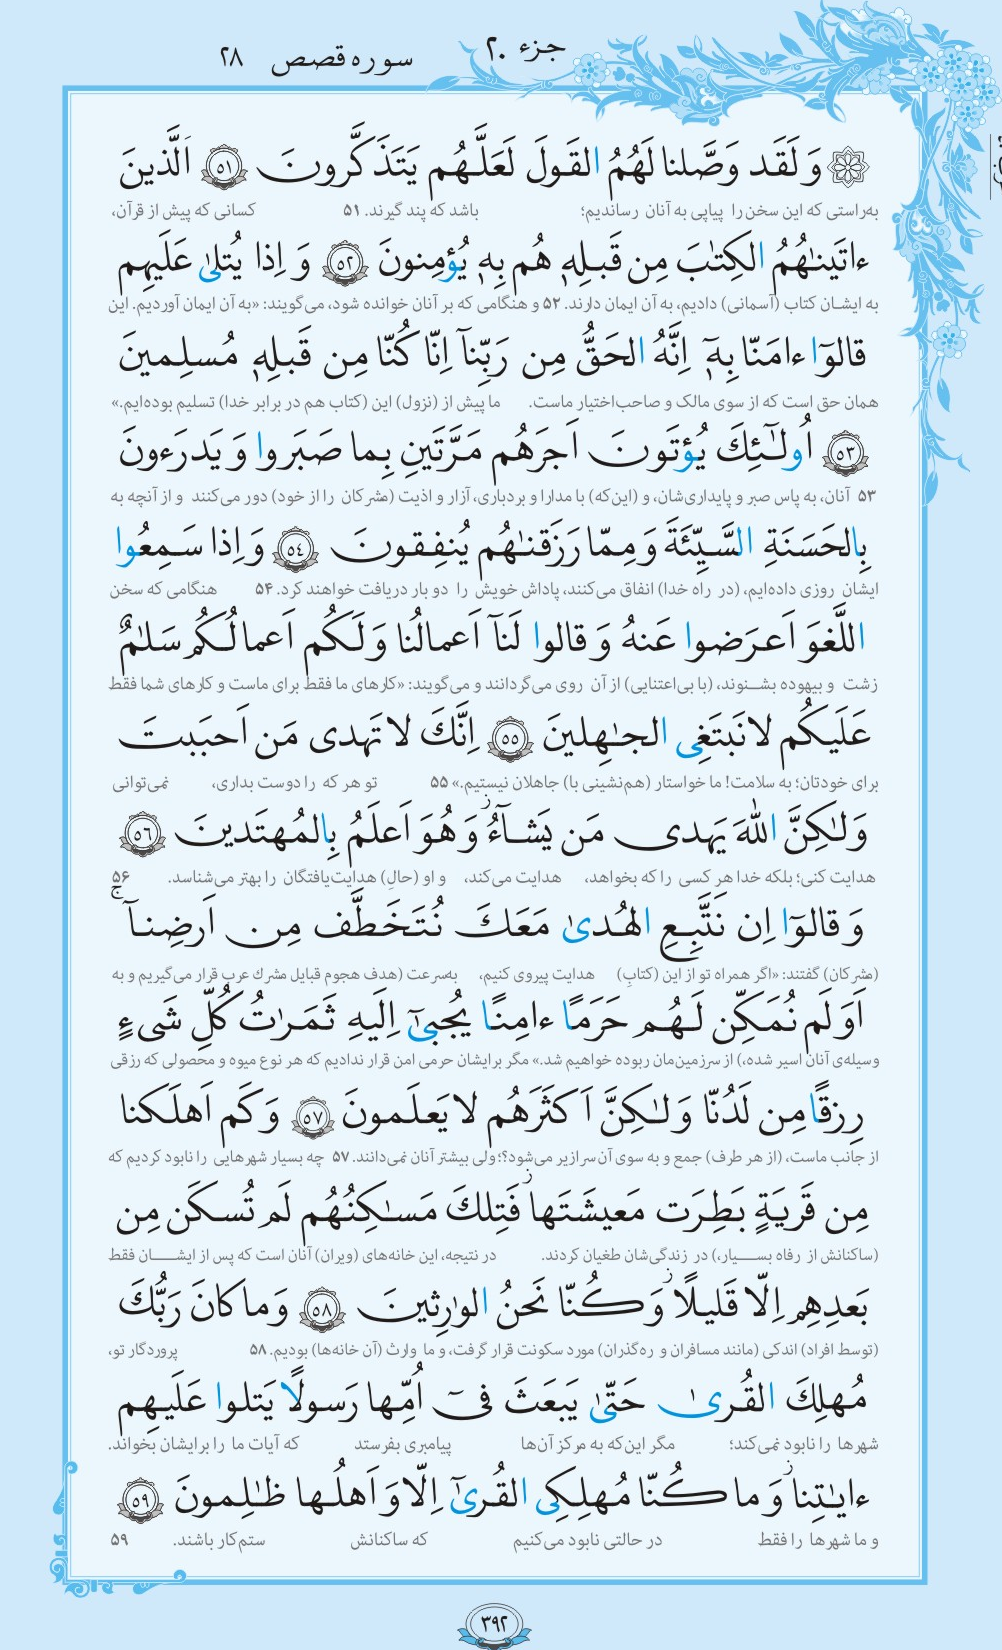 جزء ۲۰
سوره قصص ۲۸
وَ لَقَد وَصَّلنا لَهُمُ القَولَ لَعَلَّهُم يَتَذَكَّرونَ ﴿٥١﴾ اَلَّذينَ
به‌راستی که این سخن را پیاپی به آنان رساندیم؛ باشد که پند گیرند. ۵۱ کسانی که پیش از قرآن،
ءاتَينٰهُمُ الكِتٰبَ مِن قَبلِهٖ هُم بِهٖ يُؤمِنونَ ﴿٥٢﴾ وَ اِذا يُتلىٰ عَلَيهِم
به ایشان کتاب (آسمانی) دادیم، به آن ایمان دارند. ۵۲ و هنگامی که بر آنان خوانده شود، می‌گویند: «به آن ایمان آوردیم. این
قالوٓا ءامَنّا بِهٖٓ اِنَّهُ الحَقُّ مِن رَبِّنآ اِنّا كُنّا مِن قَبلِهٖ مُسلِمينَ
همان حق است که از سوی مالک و صاحب‌اختیار ماست. ما پیش از (نزول) این (کتاب هم در برابر خدا) تسلیم بوده‌ایم.»
﴿٥٣﴾ اُولٰٓئِكَ يُؤتَونَ اَجرَهُم مَرَّتَينِ بِما صَبَروا وَ يَدرَءونَ
۵۳ آنان، به پاس صبر و پایداری‌شان، و (این‌که) با مدارا و بردباری، آزار و اذیت (مشرکان را از خود) دور می‌کنند و از آنچه به
بِالحَسَنَةِ السَّيِّئَةَ وَ مِمّا رَزَقنٰهُم يُنفِقونَ ﴿٥٤﴾ وَ اِذا سَمِعُوا
ایشان روزی داده‌ایم، (در راه خدا) انفاق می‌کنند، پاداش خویش را دو بار دریافت خواهند کرد. ۵۴ هنگامی که سخن
اللَّغوَ اَعرَضوا عَنهُ وَ قالوا لَنآ اَعمالُنا وَ لَكُم اَعمالُكُم سَلٰمٌ
زشت و بیهوده بشنوند، (با بی‌اعتنایی) از آن روی می‌گردانند و می‌گویند: «کارهای ما فقط برای ماست و کارهای شما فقط
عَلَيكُم لا نَبتَغِي الجٰهِلينَ ﴿٥٥﴾ اِنَّكَ لا تَهدى مَن اَحبَبتَ
برای خودتان؛ به سلامت! ما خواستار (هم‌نشینی با) جاهلان نیستیم.» ۵۵ تو هر که را دوست بداری، نمی‌توانی
وَ لٰكِنَّ اللّٰهَ يَهدى مَن يَشآءُ ز وَ هُوَ اَعلَمُ بِالمُهتَدينَ ﴿٥٦﴾
هدایت کنی؛ بلکه خدا هر کسی را که بخواهد، هدایت می‌کند، و او (حالِ) هدایت‌یافتگان را بهتر می‌شناسد. ۵۶
وَ قالوٓا اِن نَتَّبِعِ الهُدىٰ مَعَكَ نُتَخَطَّف مِن اَرضِنآ ج
(مشرکان) گفتند: «اگر همراه تو از این (کتابِ) هدایت پیروی کنیم، به‌سرعت (هدف هجوم قبایل مشرک عرب قرار می‌گیریم و به
اَوَ لَم نُمَكِّن لَهُم حَرَمًا ءامِنًا يُجبىٰٓ اِلَيهِ ثَمَرٰتُ كُلِّ شَىءٍ
وسیله‌ی آنان اسیر شده،) از سرزمین‌مان ربوده خواهیم شد.» مگر برایشان حرمی امن قرار ندادیم که هر نوع میوه و محصولی که رزقی
رِزقًا مِن لَدُنّا وَ لٰكِنَّ اَكثَرَهُم لا يَعلَمونَ ﴿٥٧﴾ وَ كَم اَهلَكنا
از جانب ماست، (از هر طرف) جمع و به سوی آن سرازیر می‌شود؟؛ ولی بیشتر آنان نمی‌دانند. ۵۷ چه بسیار شهرهایی را نابود کردیم که
مِن قَريَةٍ بَطِرَت مَعيشَتَها ز فَتِلكَ مَسٰكِنُهُم لَم تُسكَن مِن
(ساکنانش از رفاه بسیار،) در زندگی‌شان طغیان کردند. در نتیجه، این خانه‌های (ویران) آنان است که پس از ایشان فقط
بَعدِهِم اِلّا قَليلًا ز وَ كُنّا نَحنُ الوٰرِثينَ ﴿٥٨﴾ وَ ما كانَ رَبُّكَ
(توسط افراد) اندکی (مانند مسافران و ره‌گذران) مورد سکونت قرار گرفت، و ما وارث (آن خانه‌ها) بودیم. ۵۸ پروردگار تو،
مُهلِكَ القُرىٰ حَتّىٰ يَبعَثَ فىٓ اُمِّها رَسولًا يَتلوا عَلَيهِم
شهرها را نابود نمی‌کند؛ مگر این‌که به مرکز آن‌ها پیامبری بفرستد که آیات ما را برایشان بخواند.
ءايٰتِنا ز وَ ما كُنّا مُهلِكِى القُرىٰٓ اِلّا وَ اَهلُها ظٰلِمونَ ﴿٥٩﴾
و ما شهرها را فقط در حالتی نابود می‌کنیم که ساکنانش ستم‌کار باشند. ۵۹
۳۹۲